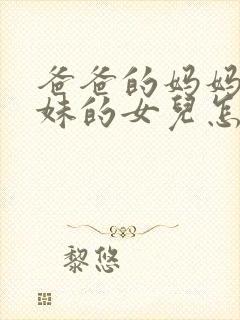 爸爸的妈妈
妹的女兒怎
黎悠